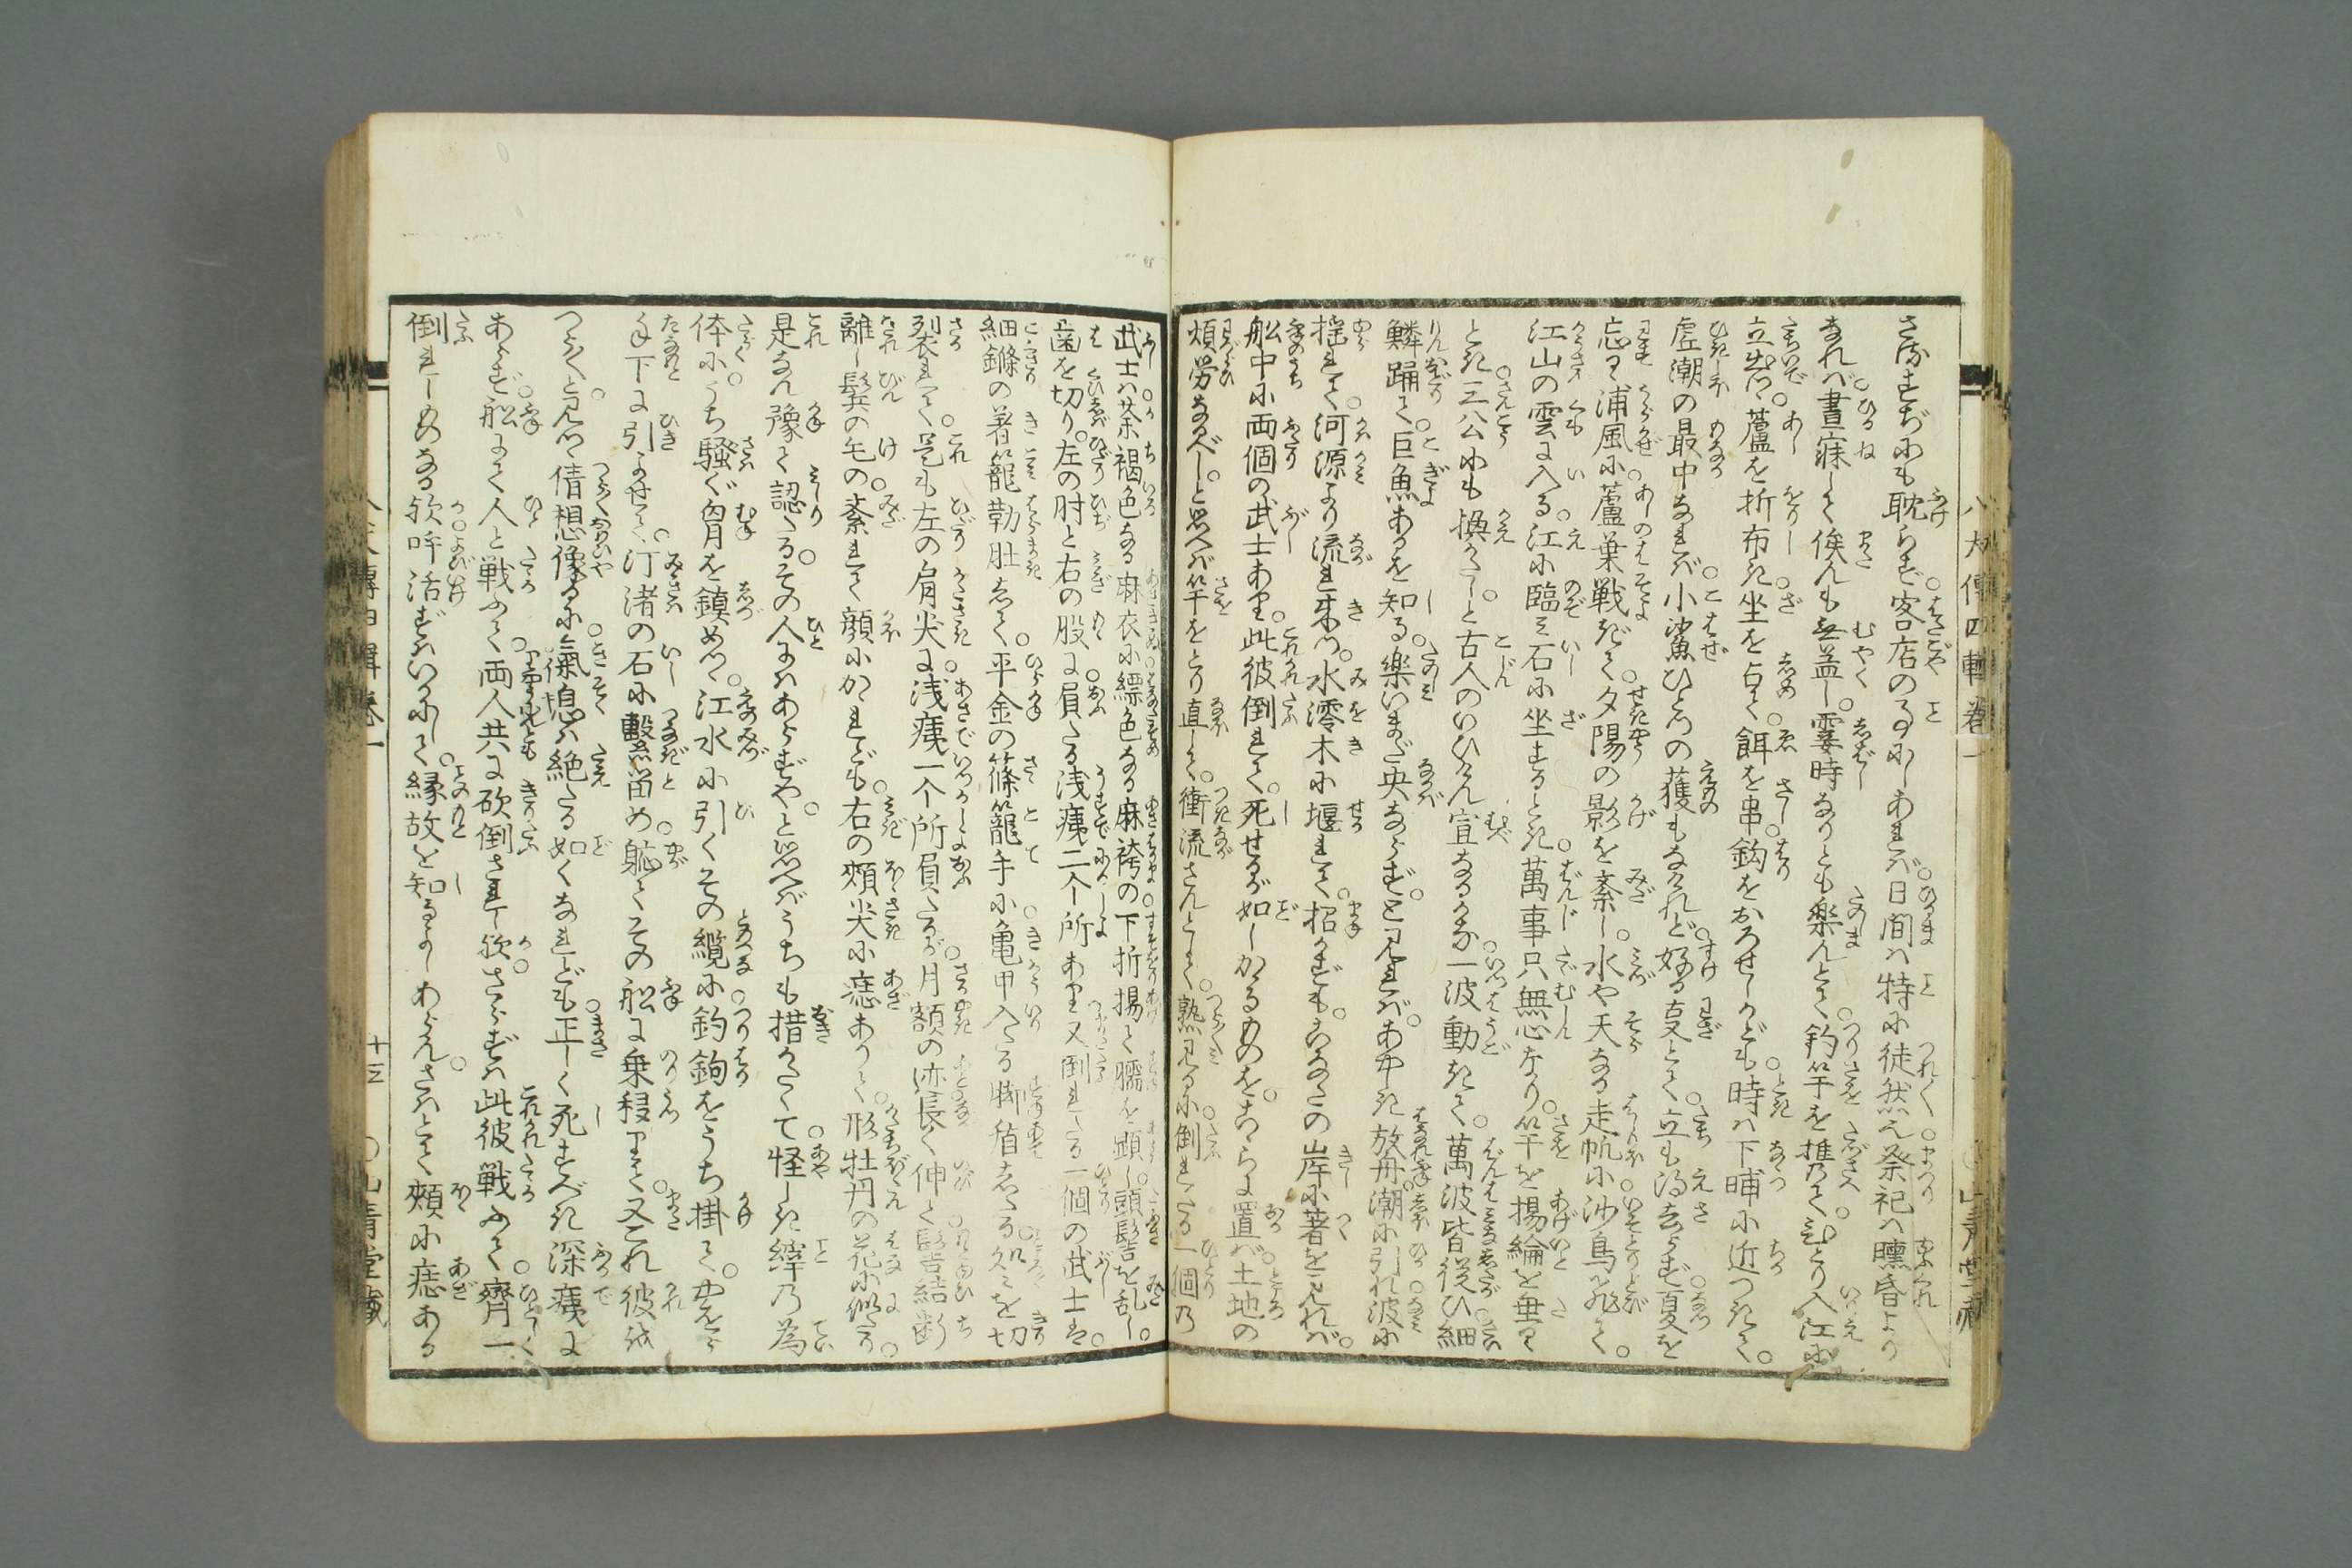 さるすぢにも耽らず。客店の事にしあれば。日間は特に徒然也。祭祀は曛昏より
なれば。晝寐して俟んも無益し。霎時なりとも樂んとて。釣竿を携て。ひとり入江に
立出つ。蘆を折布き。坐を占て。餌を串。鈎をおろせしかども。時は下晡に近つきて。
虚潮の最中なれば。小鯊ひとつの獲もなけれど。好る技とて。立も得去らず。夏を
忘るゝ浦風に。蘆葉戰ぎて。夕陽の影を紊し。水や天なる走帆に。沙鳥飛て。
江山の雲に入る。江に臨み石に坐するとき。萬事只無心なり。竿を揚綸を垂るゝ
とき。三公にも換がたしと。古人のいひけん宜なるかな。一波動きて。萬波皆從ひ。細
鱗踊て。巨魚あるを知る。樂いまだ央ならず。と見れば。あやしき放舟。潮に引れ波に
揺れて。河源より流れ來つ。水澪木に堰れて。招かずも。こなたの岸に著を見れば。
舩中に両個の武士あり。此彼倒れて。死せるが如し。かゝるものを。こゝらに置ば。土地の
煩労なるべし。と思へば竿をとり直して。衝流さんとしつゝ。熟見るに。倒れたる一個の
武士は。茶褐色なる麻衣に。縹色なる麻袴の。下折揚て臑を顕し。頭髻を乱し。
歯を切り。左の肘と右の股に。負たる浅痍二个所あり。又倒れたる一個の武士は。
細鏁の著籠勒肚して。平金の篠籠手に。亀甲入たる脚楯したる。処々を切
裂れて。是も左の肩尖に。浅痍一个所負たるが。月額の迹長く伸て。髻結断
離し。鬢の毛の。紊れて顔にかゝれども。右の頬尖に痣ありて。形牡丹の花に似たり。
是なん豫て認たる。その人にはあらずや。と思へばうちも措がたくて。怪しき縡の為
体に。うち騒ぐ胷を鎮めつ。江水に引くその纜に。釣鉤をうち掛て。やをら
手下に引よせて。汀渚の石に繋留め。軈てその舩に乗移りて。又これ彼を
つらつらと見つ。倩想像るに。氣息は絶たる如くなれども。正しく死すべき深痍に
あらず。舩にて人と戦ふて。両人共に砍倒されし歟。さらずは此彼戦ふて。齊一
倒れしものなる歟。呼活ずはいかにして。縁故を知るよしあらん。さはとて頬に痣ある
八犬傳四輯巻一
十三
○山青堂藏